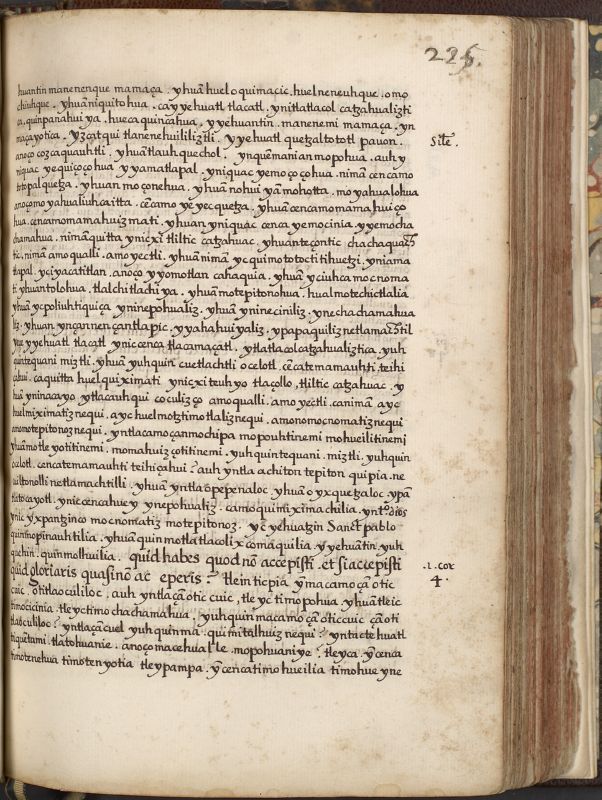 225.
huantin manenenque mamaça . yhuā huel oquimacic . huel neneuhque . omo
chiuhque . yhuā niquitohua . ca ȳ yehuatl tlacatl . ynitlatlacol catzahualizti
ca, quinpanahui ya . hueca quincahua, yyehuantin . manenemi mamaça . yn
maçayotica . yzçatqui tlanenehuililiztli . yyehuatl quetzaltototl pauon .
anoço cozcaquauhtli . yhuā tlauhquechol . ynquēmanian mopohua . auh y
niquac yequiçoçohua yyamatlapal . yniquac yemoçoçohua . nimā cencamo
totopalquetza . yhuan moçonehua . yhuā nohuiyā mohotta . moyahualohua
anoço moyahualiuhcaitta . cēcamo yeyecquetza . yhuā cencamomamahuiço
hua . cencamomamahuizmati . yhuan yniquac cenca yemocinia, yyemocha
chamahua . nimā quitta ynicxi tliltic catzahuac . yhuan teçontic chachaquach
tic, nimā amo qualli . amo yectli . yhuā nimā yc quimototoctitihuetzi . yniama
tlapal . yciyacatitlan . anoço yyomotlan cahaquia . yhuā yciuhca mocnoma
ti yhuan tolohua . tlalchitlachiya . yhuā motepitonohua . hualmotechictlalia
yhuā yc poliuhtiquiça yninepohualiz . yhuā ynineciniliz . ynechachamahua
liz . yhuan yncannençantlapic . yyahahuiyaliz . ypapaquiliz netlamachtil
yuh yyehuatl tlacatl yniccenca tlacamaçatl . ytlatlacolcatzahualiztica . yuh
quintequani miztli . yhuā yuhquin cuetlachtli ocelotl . cēcatemamauhti . teihi
çahui . caquitta huelquiximati ynicxi teuhyo tlaçollo . tliltic catzahuac . y
huā yninacayo ytlacauhqui cocoliizço amo qualli . amo yectli . canimā ayc
huelmiximatiznequi . ayc huelmotztimotlaliznequi . amonomocnomatiznequi
amomotepitonoznequi . yntlacamo çanmochipa mopouhtinemi mohueilitinemi
yhuā motleyotitinemi . momahuizçotitinemi . yuhquintequani . miztli . yuhquin
ocelotl . cencatemamauhti teihiçahui? auh yntla achiton tepiton quipia . ne
cuiltonolli netlamachtilli . yhuā yntla opepenaloc . yhuā oyxquetzaloc . ypā
tlatocayotl . yniccencahuey ynepohualiz . camoquimiximachilia . yntº dios
ynic yxpantzinco mocnomatiz motepitonoz . yc yehuatzin Sanct pablo
quinmopinauhtilia . yhuā quinmotlatlacolixcomaquilia yyehuātin . yuh
quichin . quinmolhuilia . quid habes quod nō accepisti . et si accepisti
quid gloriaris quasi nō acceperis? tlein ticpia yīmacamo çā otic
cuic . otitlaoculiloc . auh yntlaçā otic cuic, tle yc timopohua . yhuā tleic
timocicinia . tle yc timochachamahua, yuhquinmacamo çā oticcuic çā oti
tlaoculiloc? yntlaçācuel yuhquinma . quimitalhuiznequi? yntactehuatl
tiquētami . tlatohuanie . anoço macehualle . mopohuaniye? . tleyca . yīcenca
timotenehua timotenyotia tleypampa . yīcencatimohueilia timohueyne
Site .
.1. cor
4 .